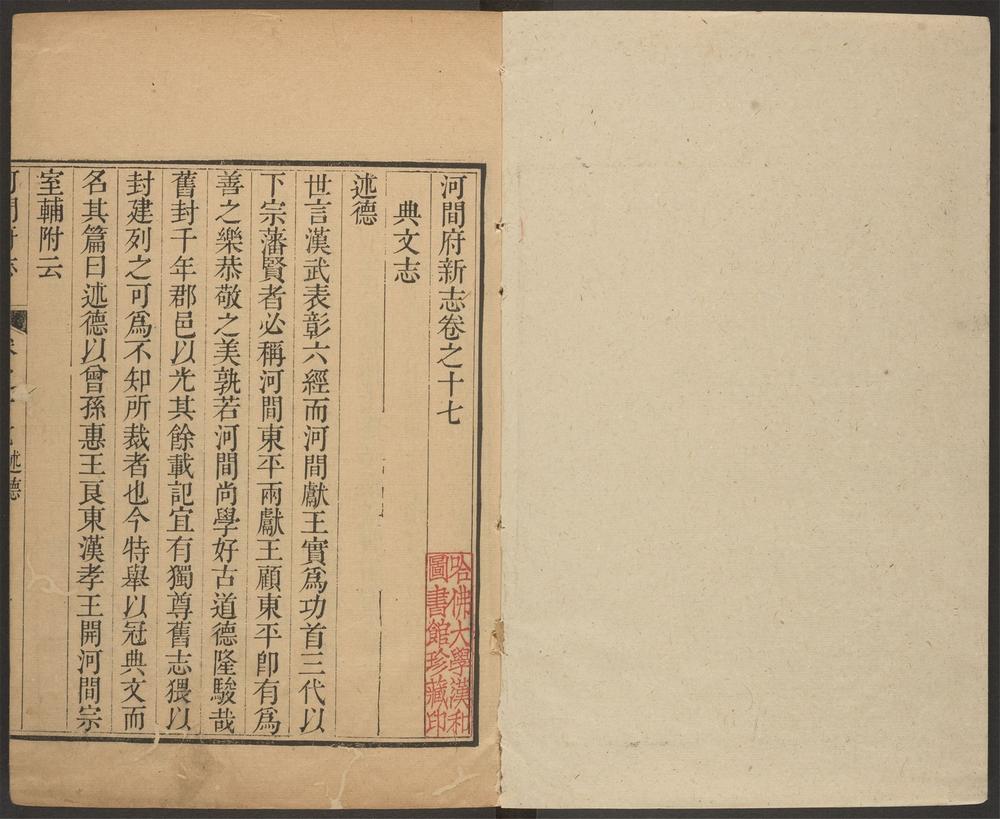 河間府新志卷之十七
典文志
述德
世言漢武表彰六經而河間獻王實爲功首三代以
下宗藩賢者必稱河間東平兩獻王顧東平卽有爲
善之樂恭敬之美孰若河間尚學好古道德隆駿哉
舊封千年郡邑以光其餘載記宜有獨尊舊志猥以
封建列之可爲不知所裁者也今特舉以冠典文而
名其篇曰述德以曾孫惠王良東漢孝王開河間宗
室輔附云
述德
哈佛大學漢和
圖書館珍藏印